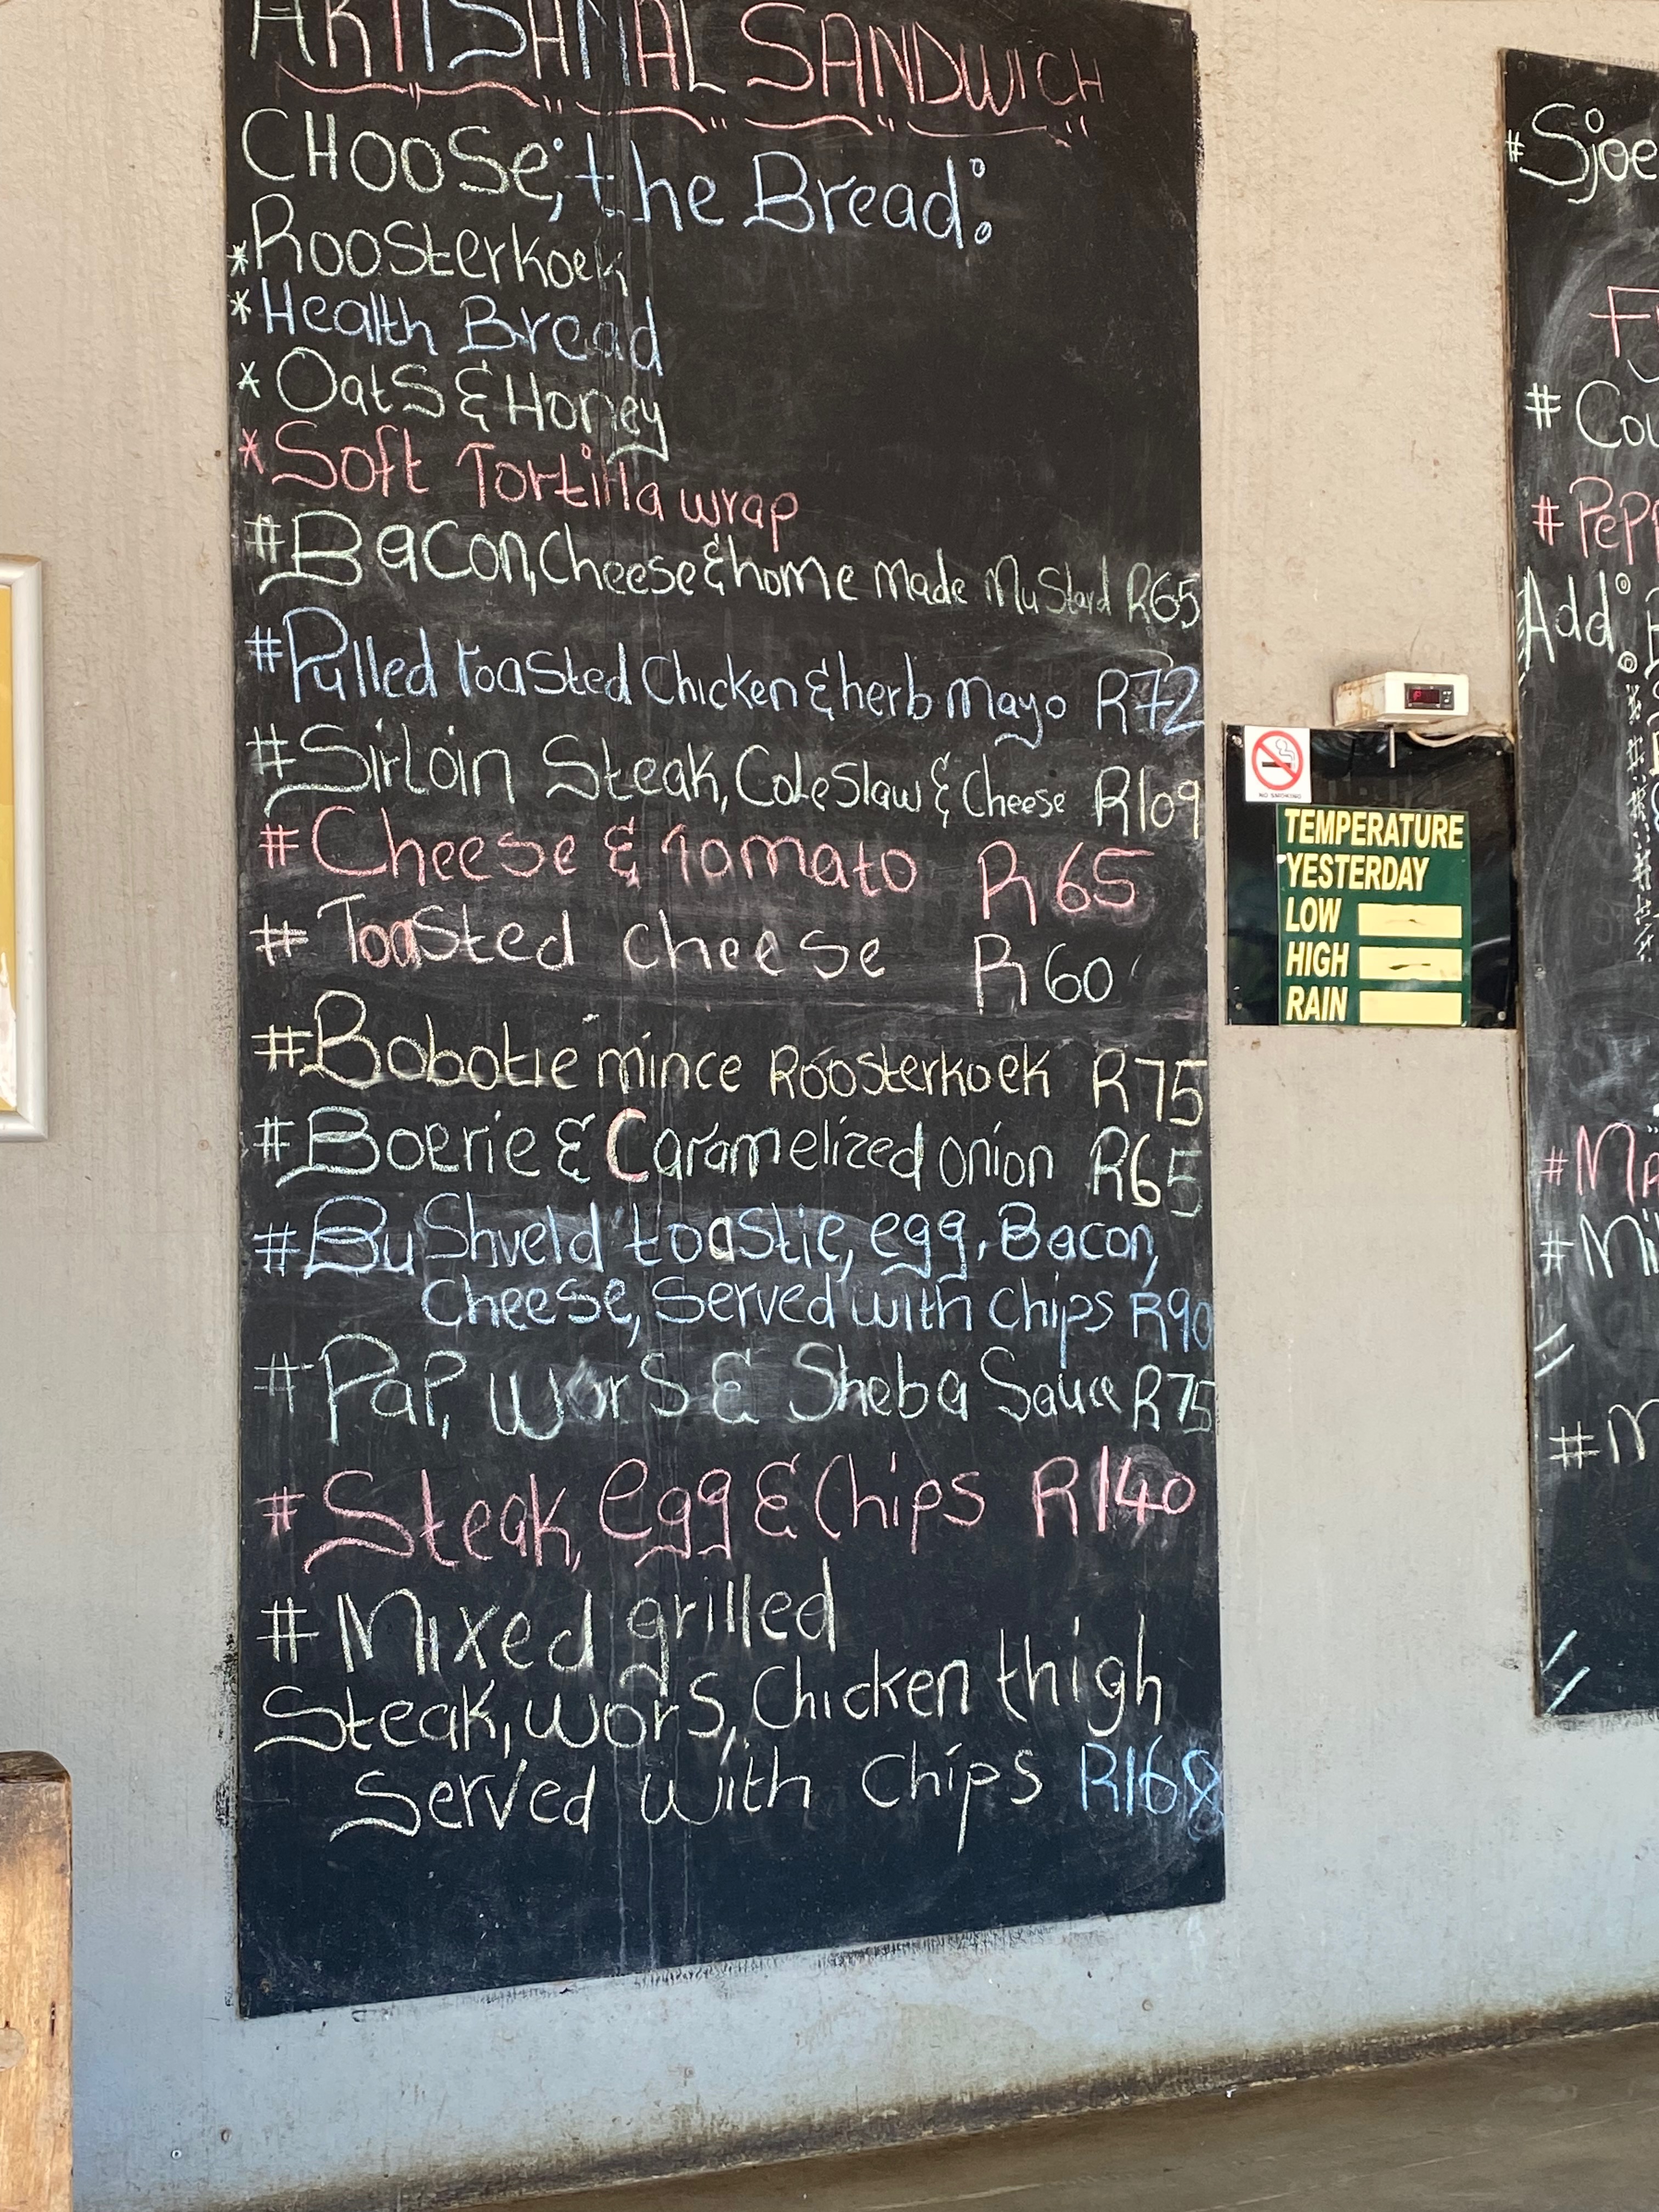 ARTISHNAL SANDWICH
CHOOSE; the Bread:
*Roosterkoek
*Health Bread
*Oats & Honey
*Soft Tortilla wrap
#Bacon, Cheese & home made Mustard R65
#Pulled toasted Chicken & herb Mayo R72
#Sirloin Steak, Coleslaw & Cheese R109
#Cheese & tomato R65
#Toasted cheese R60
#Bobotie mince Roosterkoek R75
#Boerie & Caramelized onion R65
#Bushveld toastie, egg, Bacon,
Cheese, Served with chips R90
#Pap, wors & Sheba Sauce R75
#Steak, egg & Chips R140
#Mixed grilled
Steak, wors, Chicken thigh
Served with chips R168
NO SMOKING
TEMPERATURE
YESTERDAY
LOW
HIGH
RAIN
#Sjoe
#
#
Add:
#
#
#